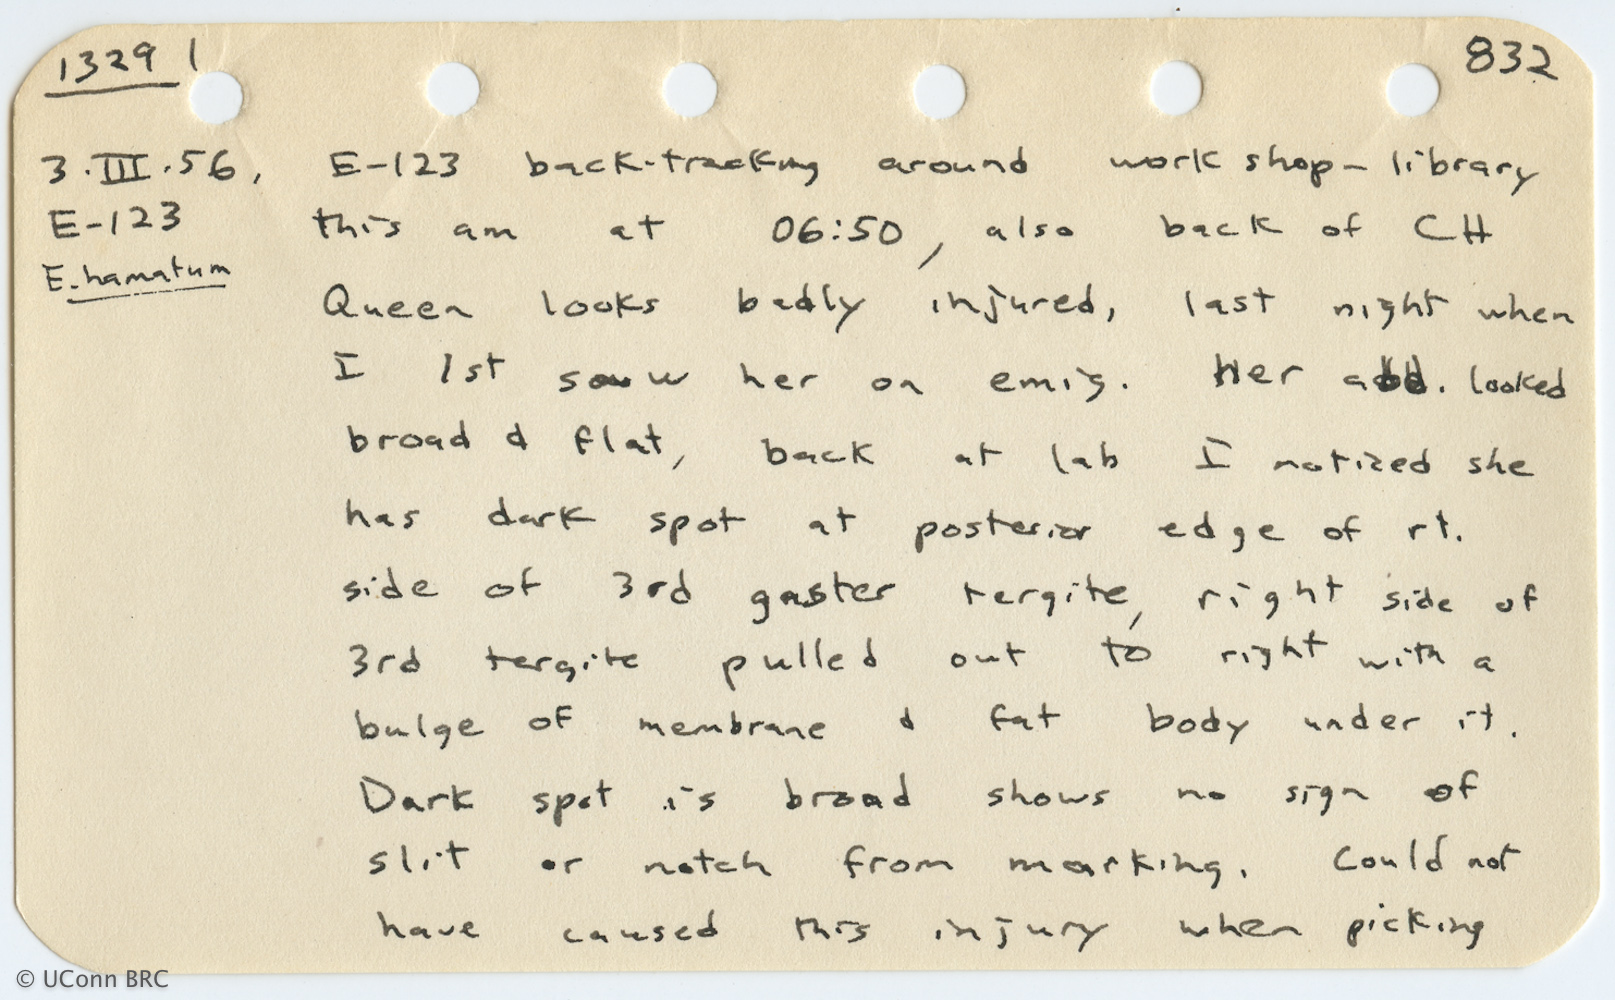 1329 1 832
3.III.56, E-123 back-tracking around work shop - library
E-123 this am at 06:50, also back of CH
E. hamatum
Queen looks badly injured, last night when
I 1st saw her on emig. Her abd. looked
broad & flat, back at lab I noticed she
has dark spot at posterior edge of rt.
side of 3rd gaster tergite, right side of
3rd tergite pulled out to right with a
bulge of membrane & fat body under it.
Dark spot is broad shows no sign of
slit or notch from marking. Could not
have caused this injury when picking
© UConn BRC